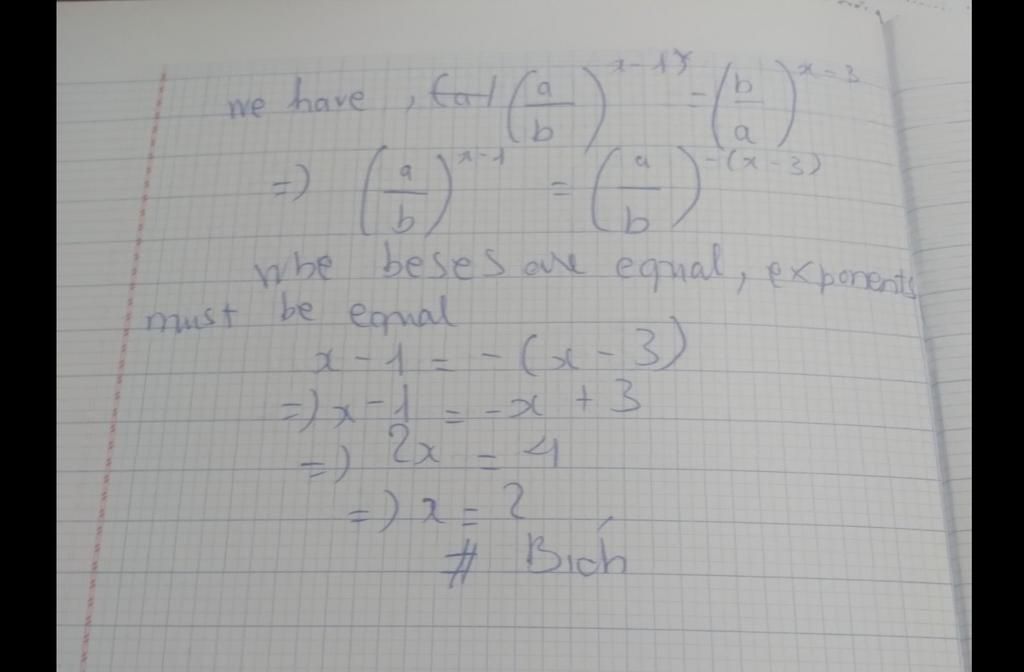 we have, (a/b)^(x-1) = (b/a)^(x-3)
=) (a/b)^(x-1) = (a/b)^(-(x-3))
beses are equal, exponents
must be equal
x - 1 = - (x - 3)
=) x - 1 = - x + 3
=) 2x = 4
=) x = 2
#